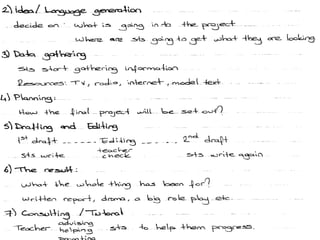 2) Idea / Language generation
decide on: what is going into the project
where are sts going to get what they are looking
3) Data gathering
Sts start gathering information
Resources: TV, radio, internet, model text
4) Planning:
How the final project will be set out?
5) Drafting and Editing
1st draft ------ Editing ----- 2nd draft
teacher
sts write check sts write again
6) The result:
what the whole thing has been for?
written report, drama, a big role play etc.
7) Consulting / Tutorial
advising
Teacher helping sts to help them progress.